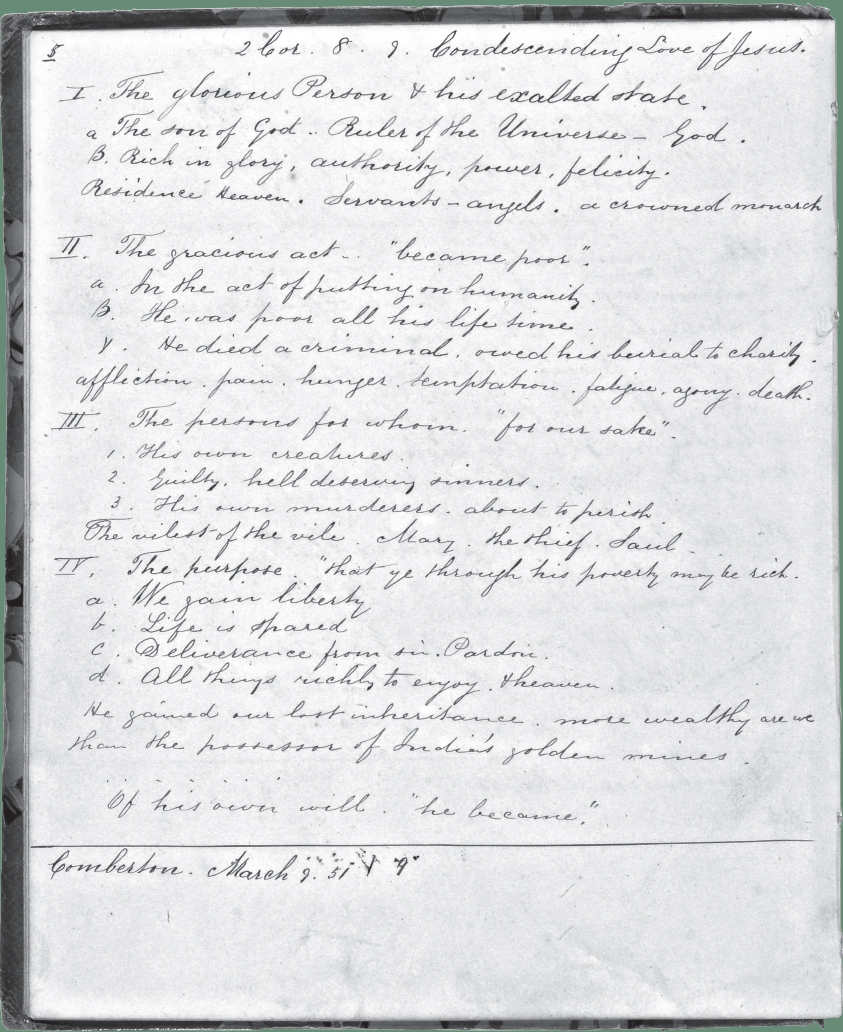 5 2 Cor. 8. 9. Condescending Love of Jesus.
I. The glorious Person & his exalted state.
a The son of God .. Ruler of the Universe - God.
B. Rich in glory, authority, power, felicity.
Residence Heaven. Servants - angels. a crowned monarch
II. The gracious act .. "became poor".
a. In the act of putting on humanity.
B. He was poor all his life time.
γ. He died a criminal. owed his burial to charity.
affliction. pain. hunger. temptation. fatigue. agony. death.
III. The persons for whom. "for our sake".
1. His own creatures.
2. Guilty, hell deserving sinners.
3. His own murderers. about to perish.
The vilest of the vile. Mary. the thief. Saul.
IV. The purpose. "that ye through his poverty may be rich.
a. We gain liberty
b. Life is spared
c. Deliverance from sin. Pardon.
d. All things richly to enjoy. & heaven.
He gained our lost inheritance. more wealthy are we
than the possessor of India's golden mines.
Of his own will. "he became".
Comberton. March 9. 51